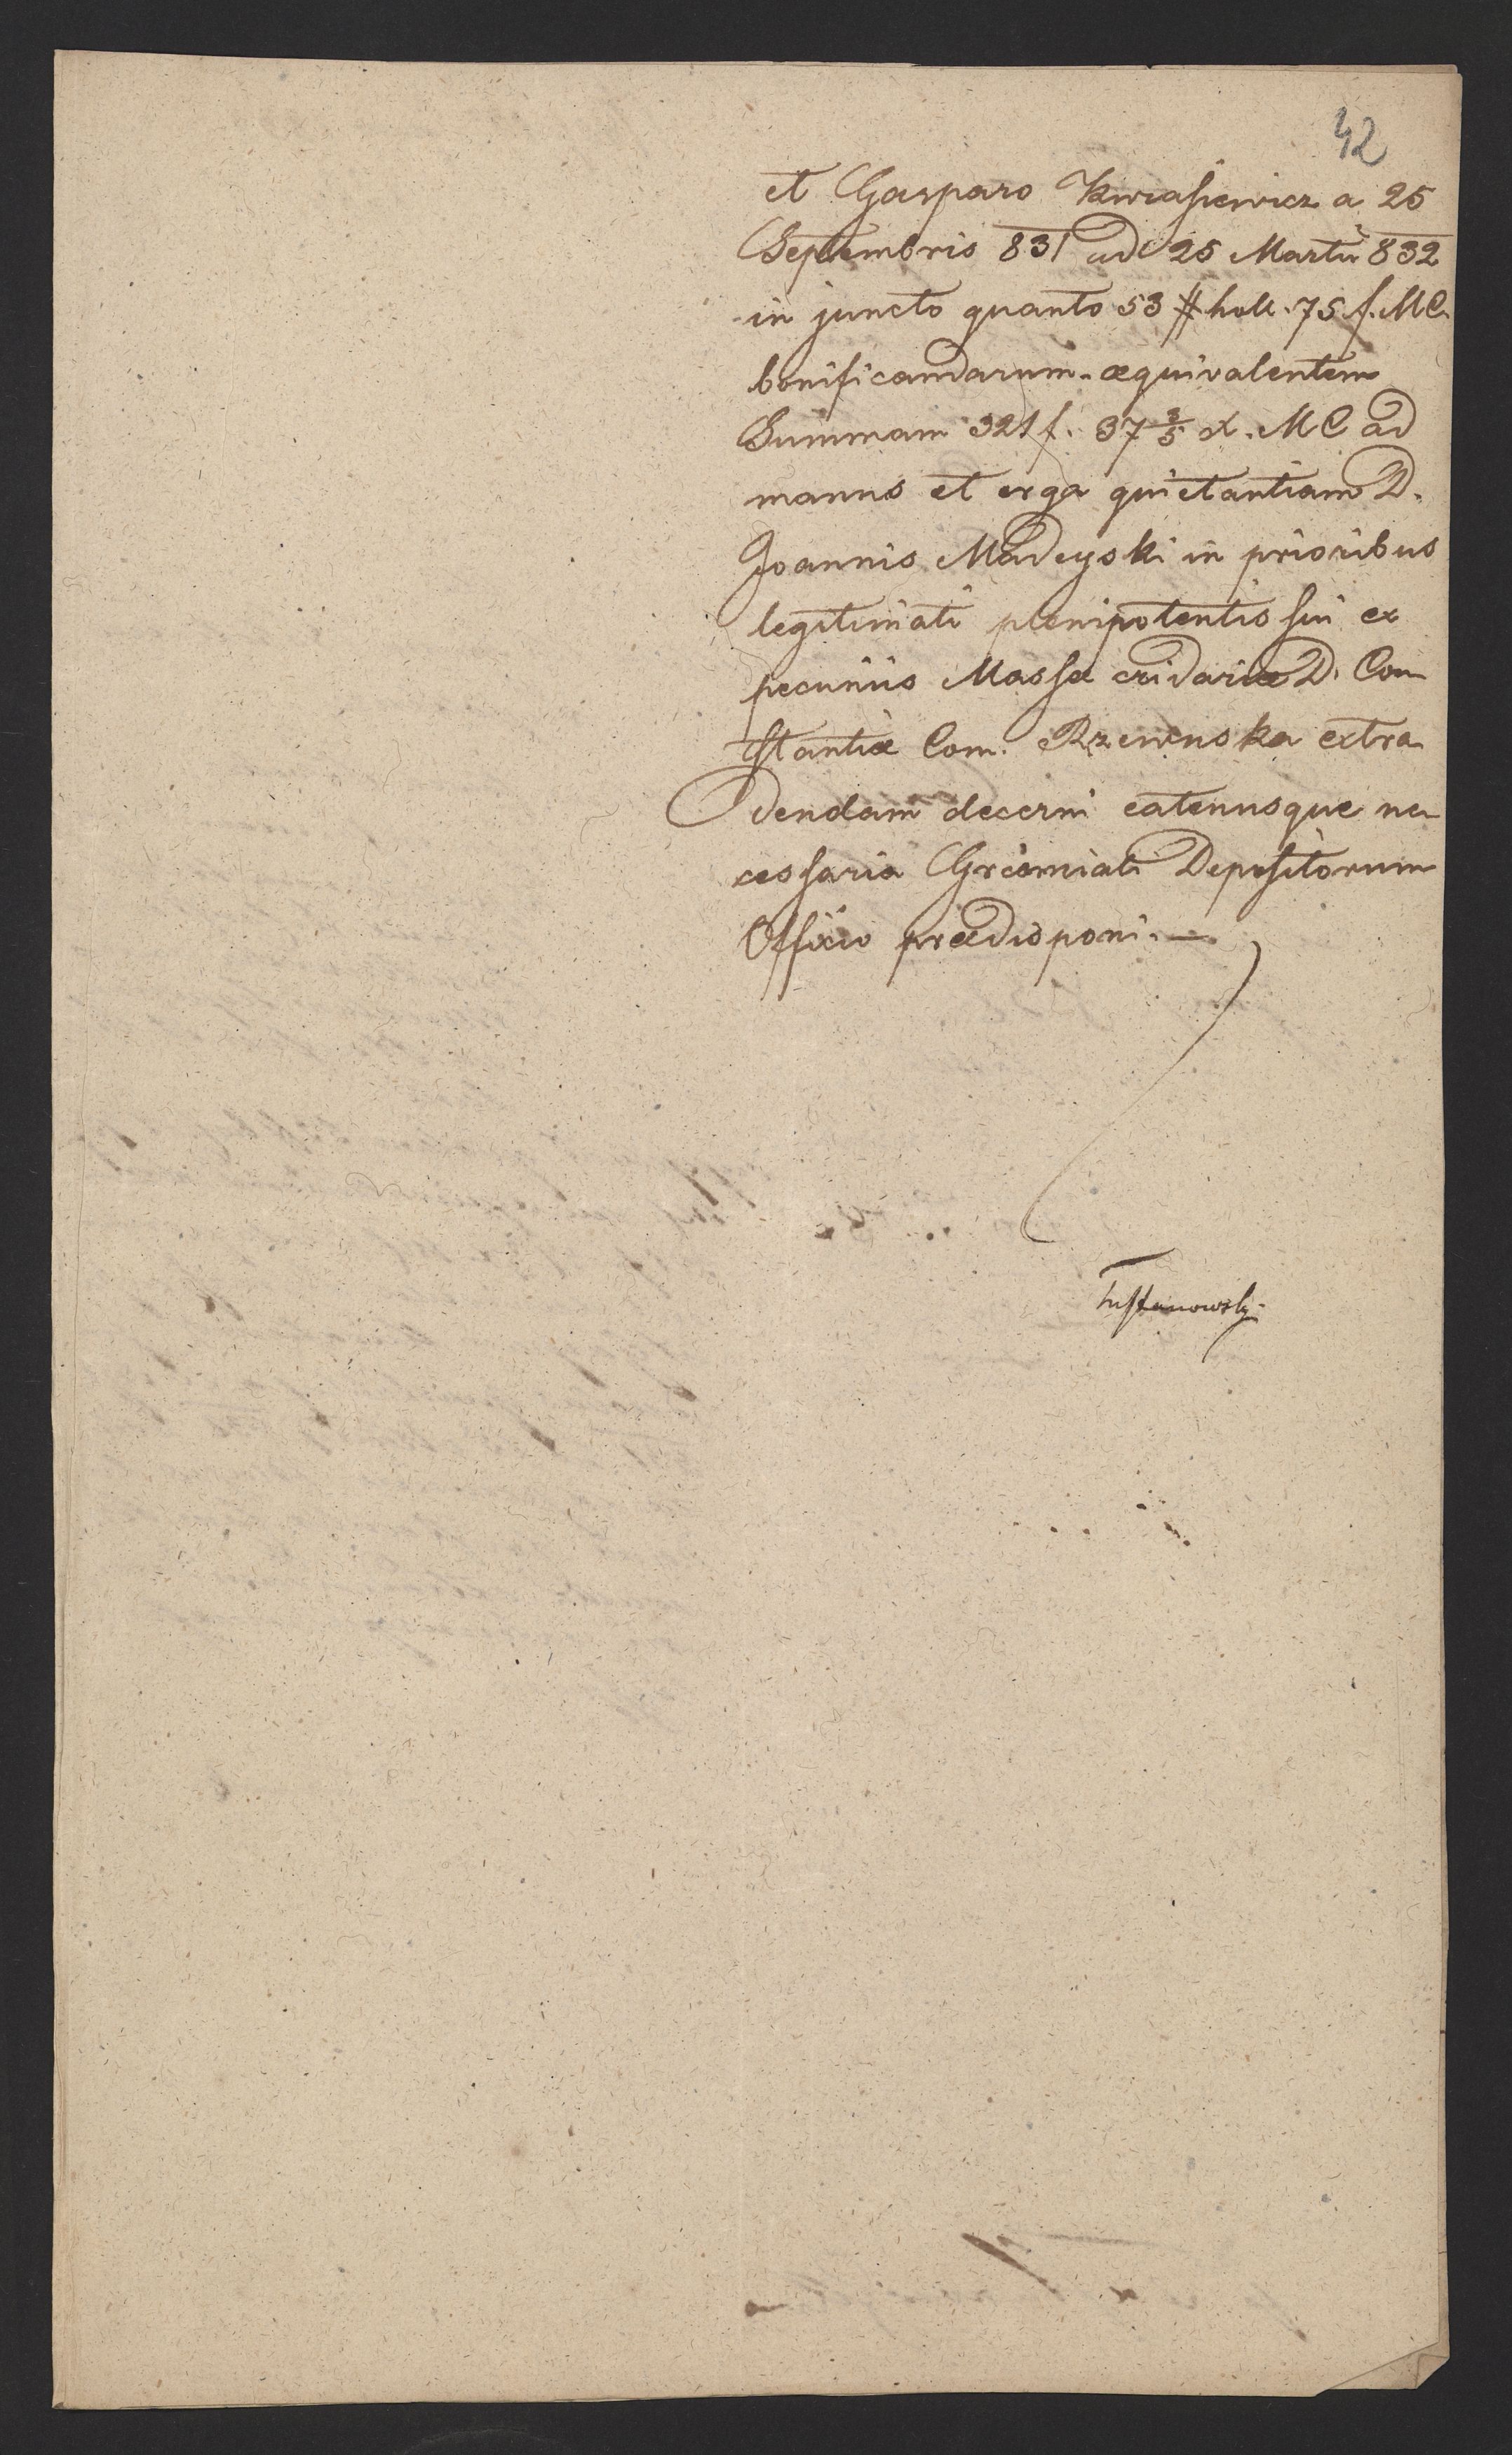 42
et Gasparo Kwiasiewicz a 25
Septembris 831 ad 25 Martii 832
in juncto quanto 53 # holl. 75 f. MC.
bonificandarum æquivalentem
Summam 321 f. 37 3/5 x. MC ad
manus et erga quietantiam D.
Joannis Madeyski in prioribus
legitimati plenipotentis sui ex
pecuniis Massæ cridariæ D. Con
stantiæ Com. Rzewuska extra
dendam decerni eatenusque ne
cessaria Gremiali Depositorum
Officio prædisponi. —
Tustanowsky